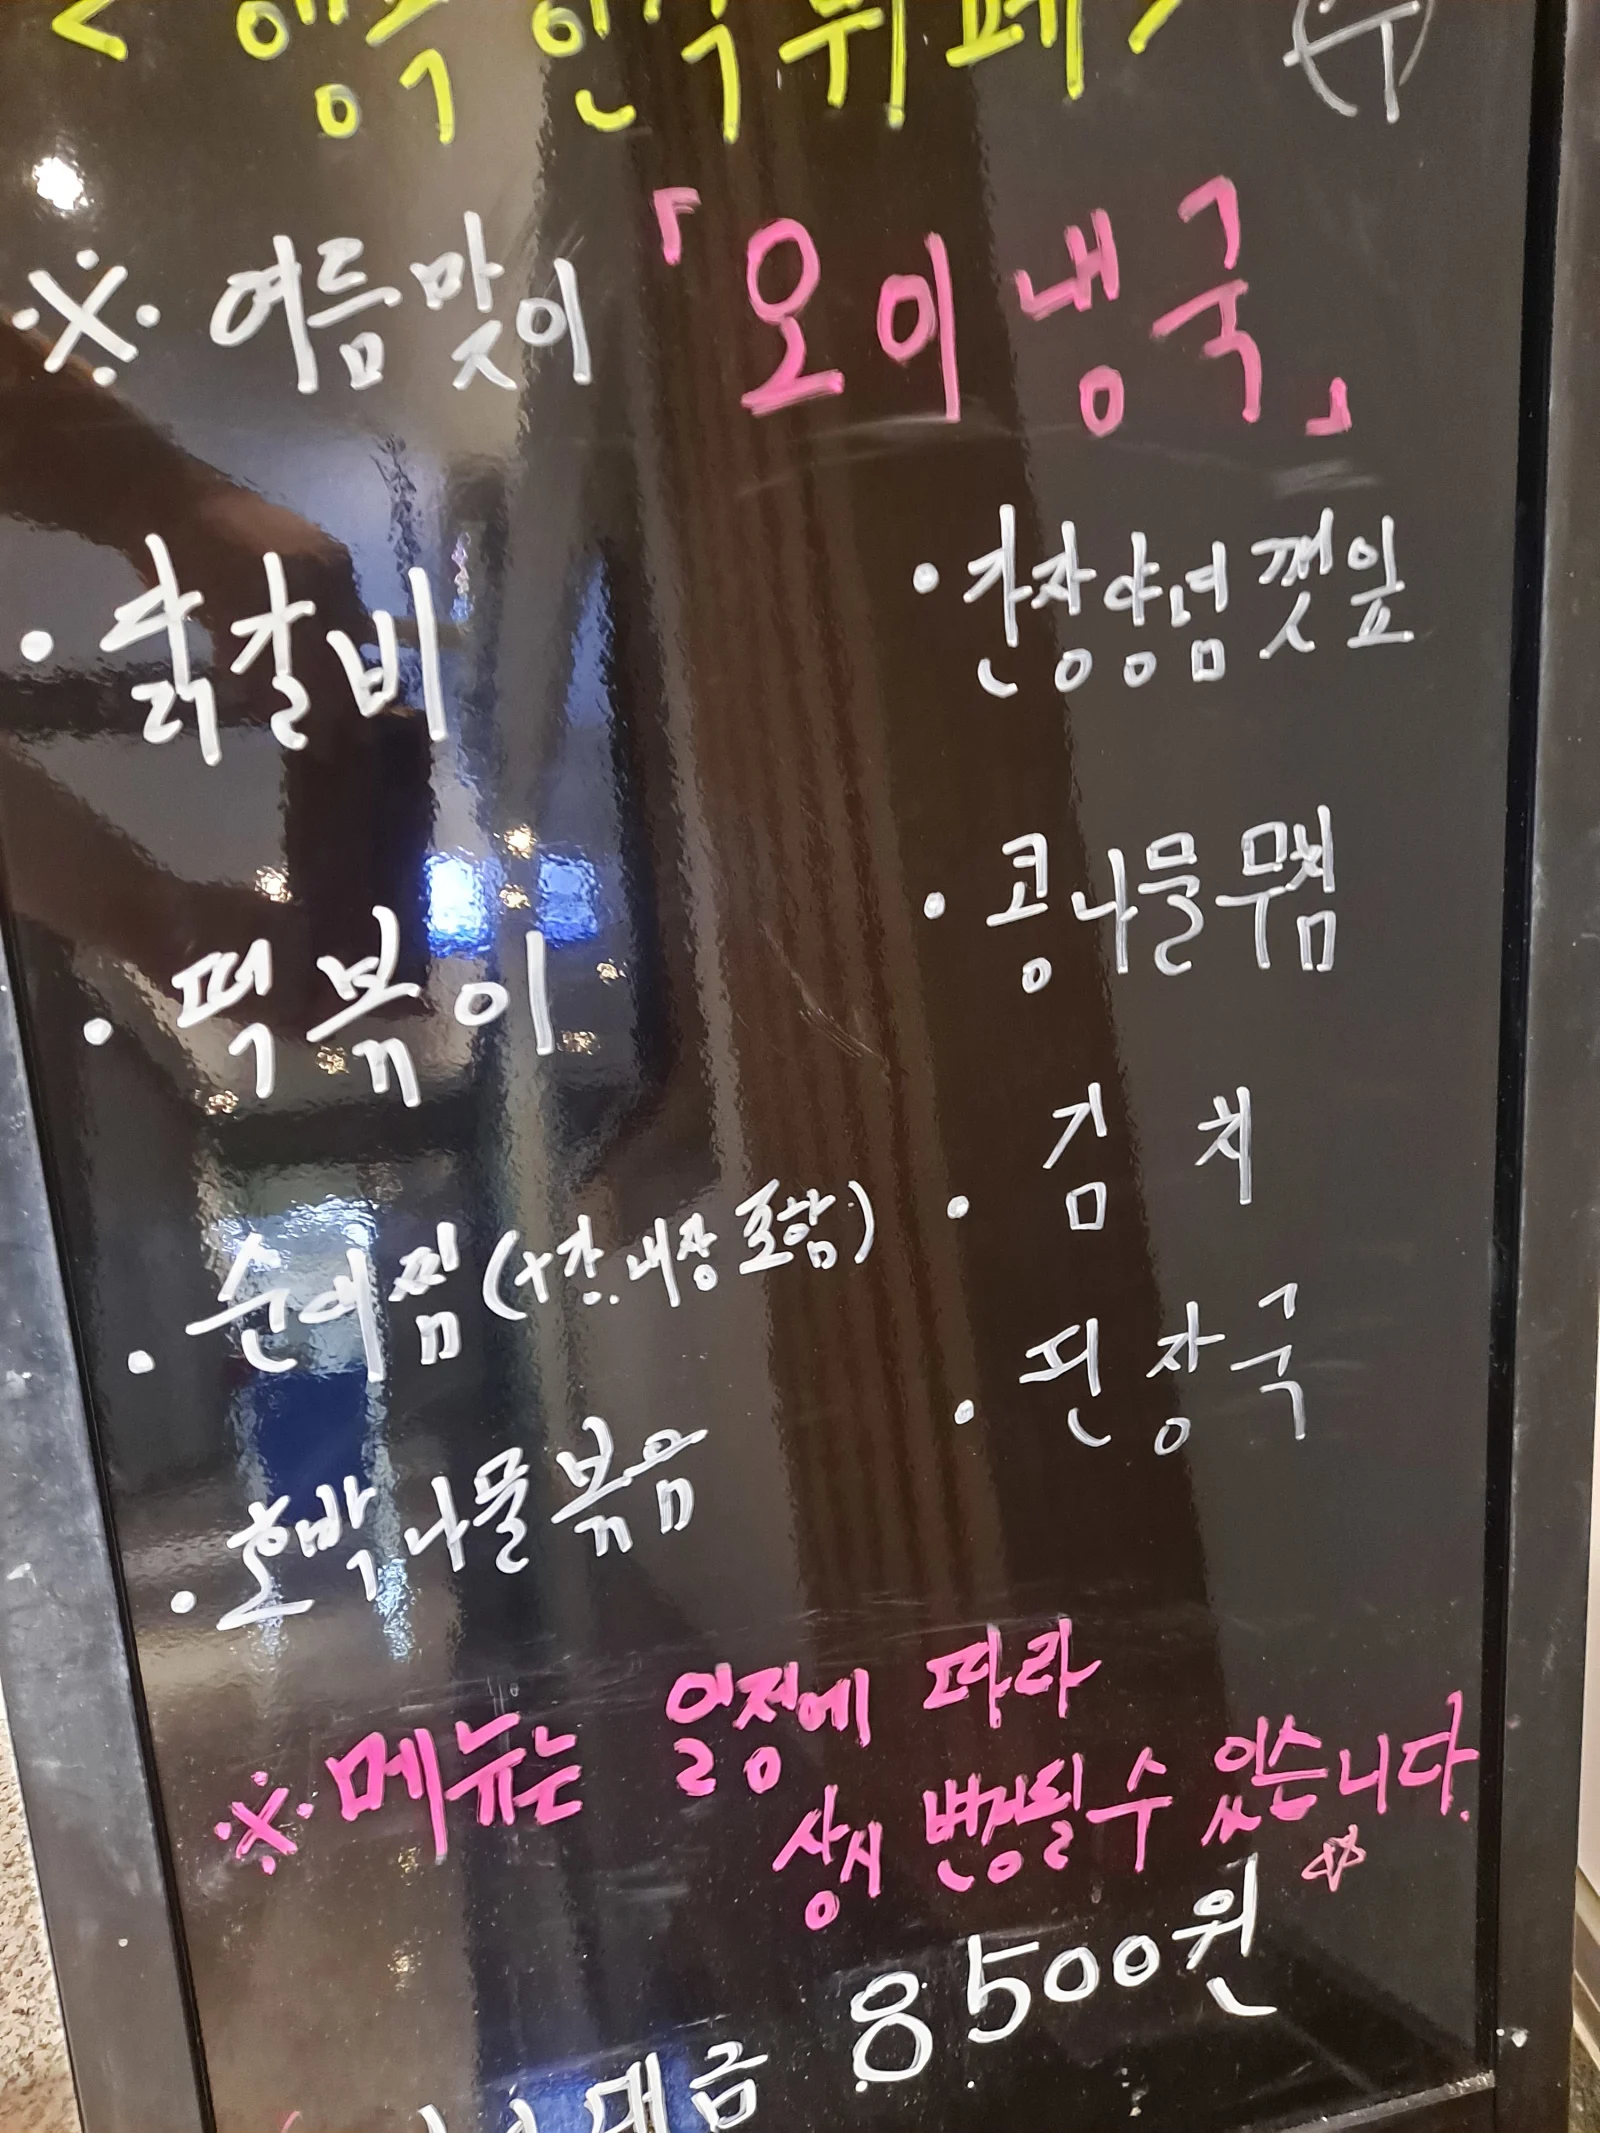 < 행복 한식뷔페 > 수
※ 여름맞이 「오이냉국」
• 닭갈비
• 떡볶이
• 순대찜 (+간.내장 포함)
• 호박나물볶음
• 간장양념깻잎
• 콩나물무침
• 김 치
• 된장국
※ 메뉴는 일정에 따라
상시 변경될 수 있습니다.
8500원